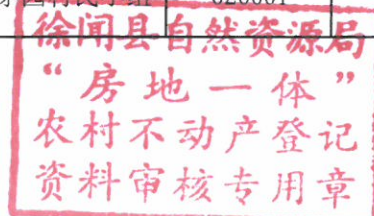 村民小组
徐闻县自然资源局
“房地一体”
农村不动产登记
资料审核专用章